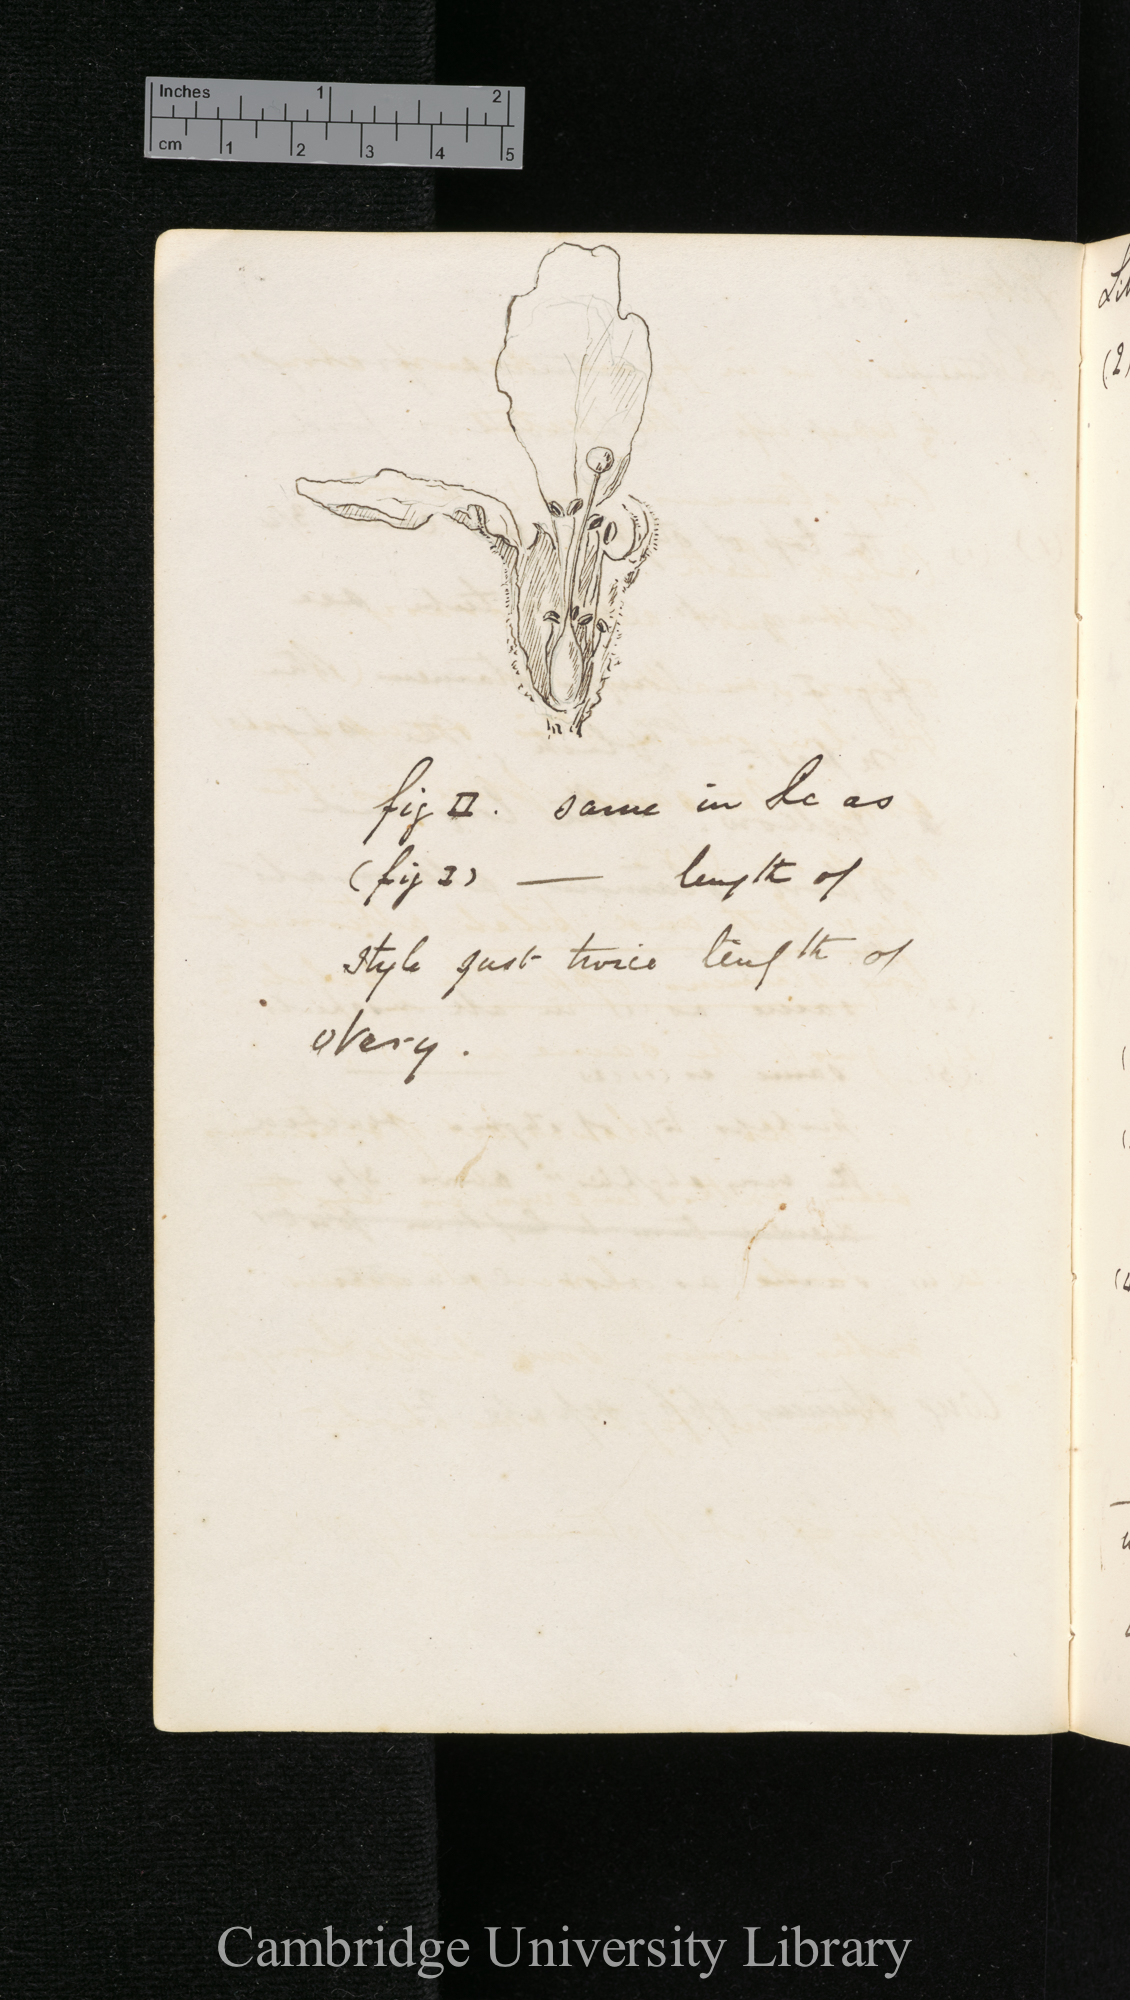 Inches 1 2
cm 1 2 3 4 5
fig II. same in &c as
(fig I) — length of
style just twice length of
ovary.
Cambridge University Library